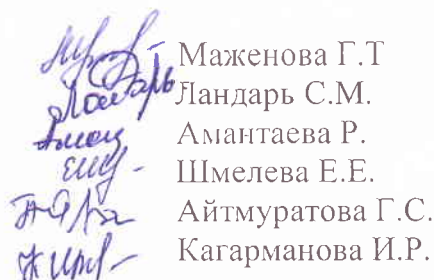 Маженова Г.Т
Ландарь С.М.
Амантаева Р.
Шмелева Е.Е.
Айтмуратова Г.С.
Кагарманова И.Р.